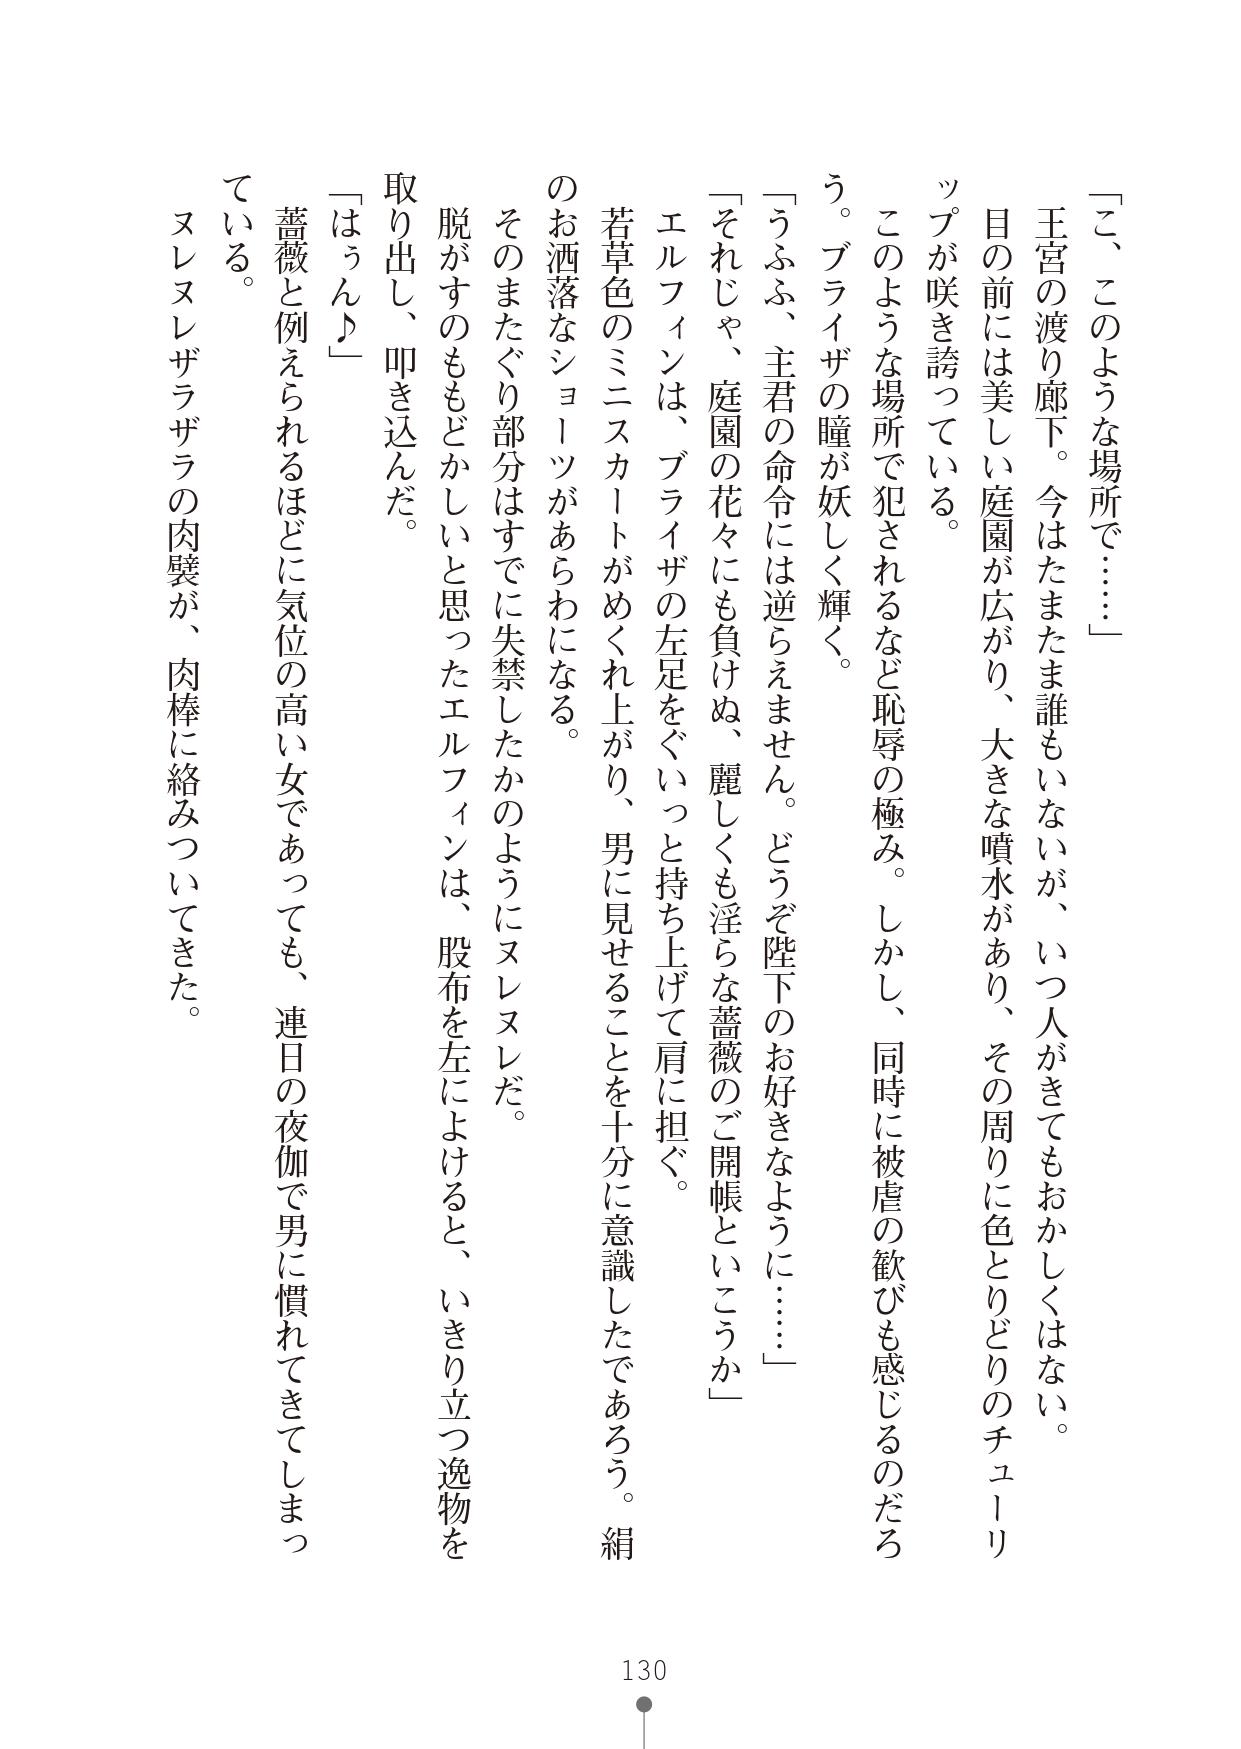 「こ、このような場所で……」
王宮の渡り廊下。今はたまたま誰もいないが、いつ人がきてもおかしくはない。
目の前には美しい庭園が広がり、大きな噴水があり、その周りに色とりどりのチューリ
ップが咲き誇っている。
このような場所で犯されるなど恥辱の極み。しかし、同時に被虐の歓びも感じるのだろ
う。ブライザの瞳が妖しく輝く。
「うふふ、主君の命令には逆らえません。どうぞ陛下のお好きなように……」
「それじゃ、庭園の花々にも負けぬ、麗しくも淫らな薔薇のご開帳といこうか」
エルフィンは、ブライザの左足をぐいっと持ち上げて肩に担ぐ。
若草色のミニスカートがめくれ上がり、男に見せることを十分に意識したであろう。絹
のお洒落なショーツがあらわになる。
そのまたぐり部分はすでに失禁したかのようにヌレヌレだ。
脱がすのももどかしいと思ったエルフィンは、股布を左によけると、いきり立つ逸物を
取り出し、叩き込んだ。
「はぅん♪」
薔薇と例えられるほどに気位の高い女であっても、連日の夜伽で男に慣れてきてしまっ
ている。
ヌレヌレザラザラの肉襞が、肉棒に絡みついてきた。
130